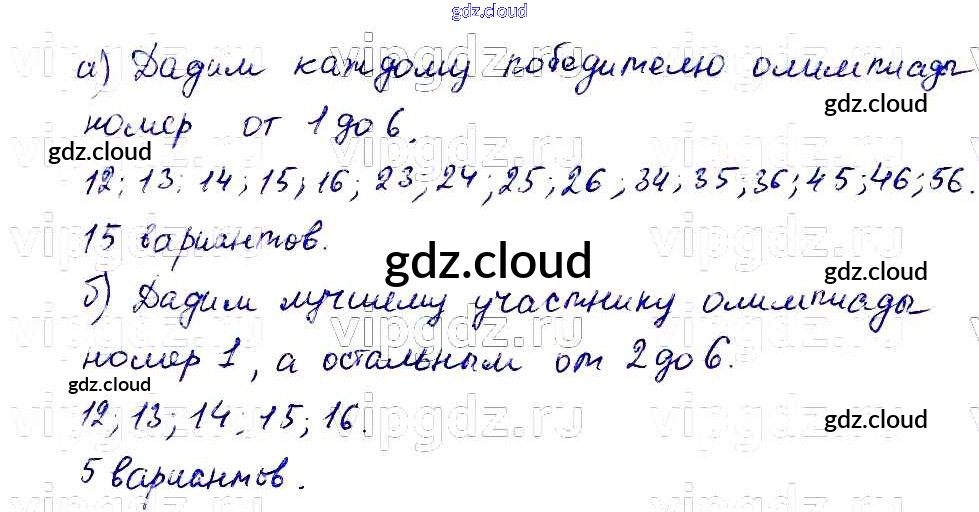 gdz.cloud
а) Дадим каждому победителю олимпиады
gdz.cloud
номер от 1 до 6.
gdz.cloud
12; 13; 14; 15; 16; 23; 24; 25; 26; 34; 35; 36; 45; 46; 56.
15 вариантов.
gdz.cloud
gdz.cloud
б) Дадим лучшему участнику олимпиады
номер 1, а остальным от 2 до 6.
gdz.cloud
12; 13; 14; 15; 16.
gdz.cloud
5 вариантов.
vipgdz.ru